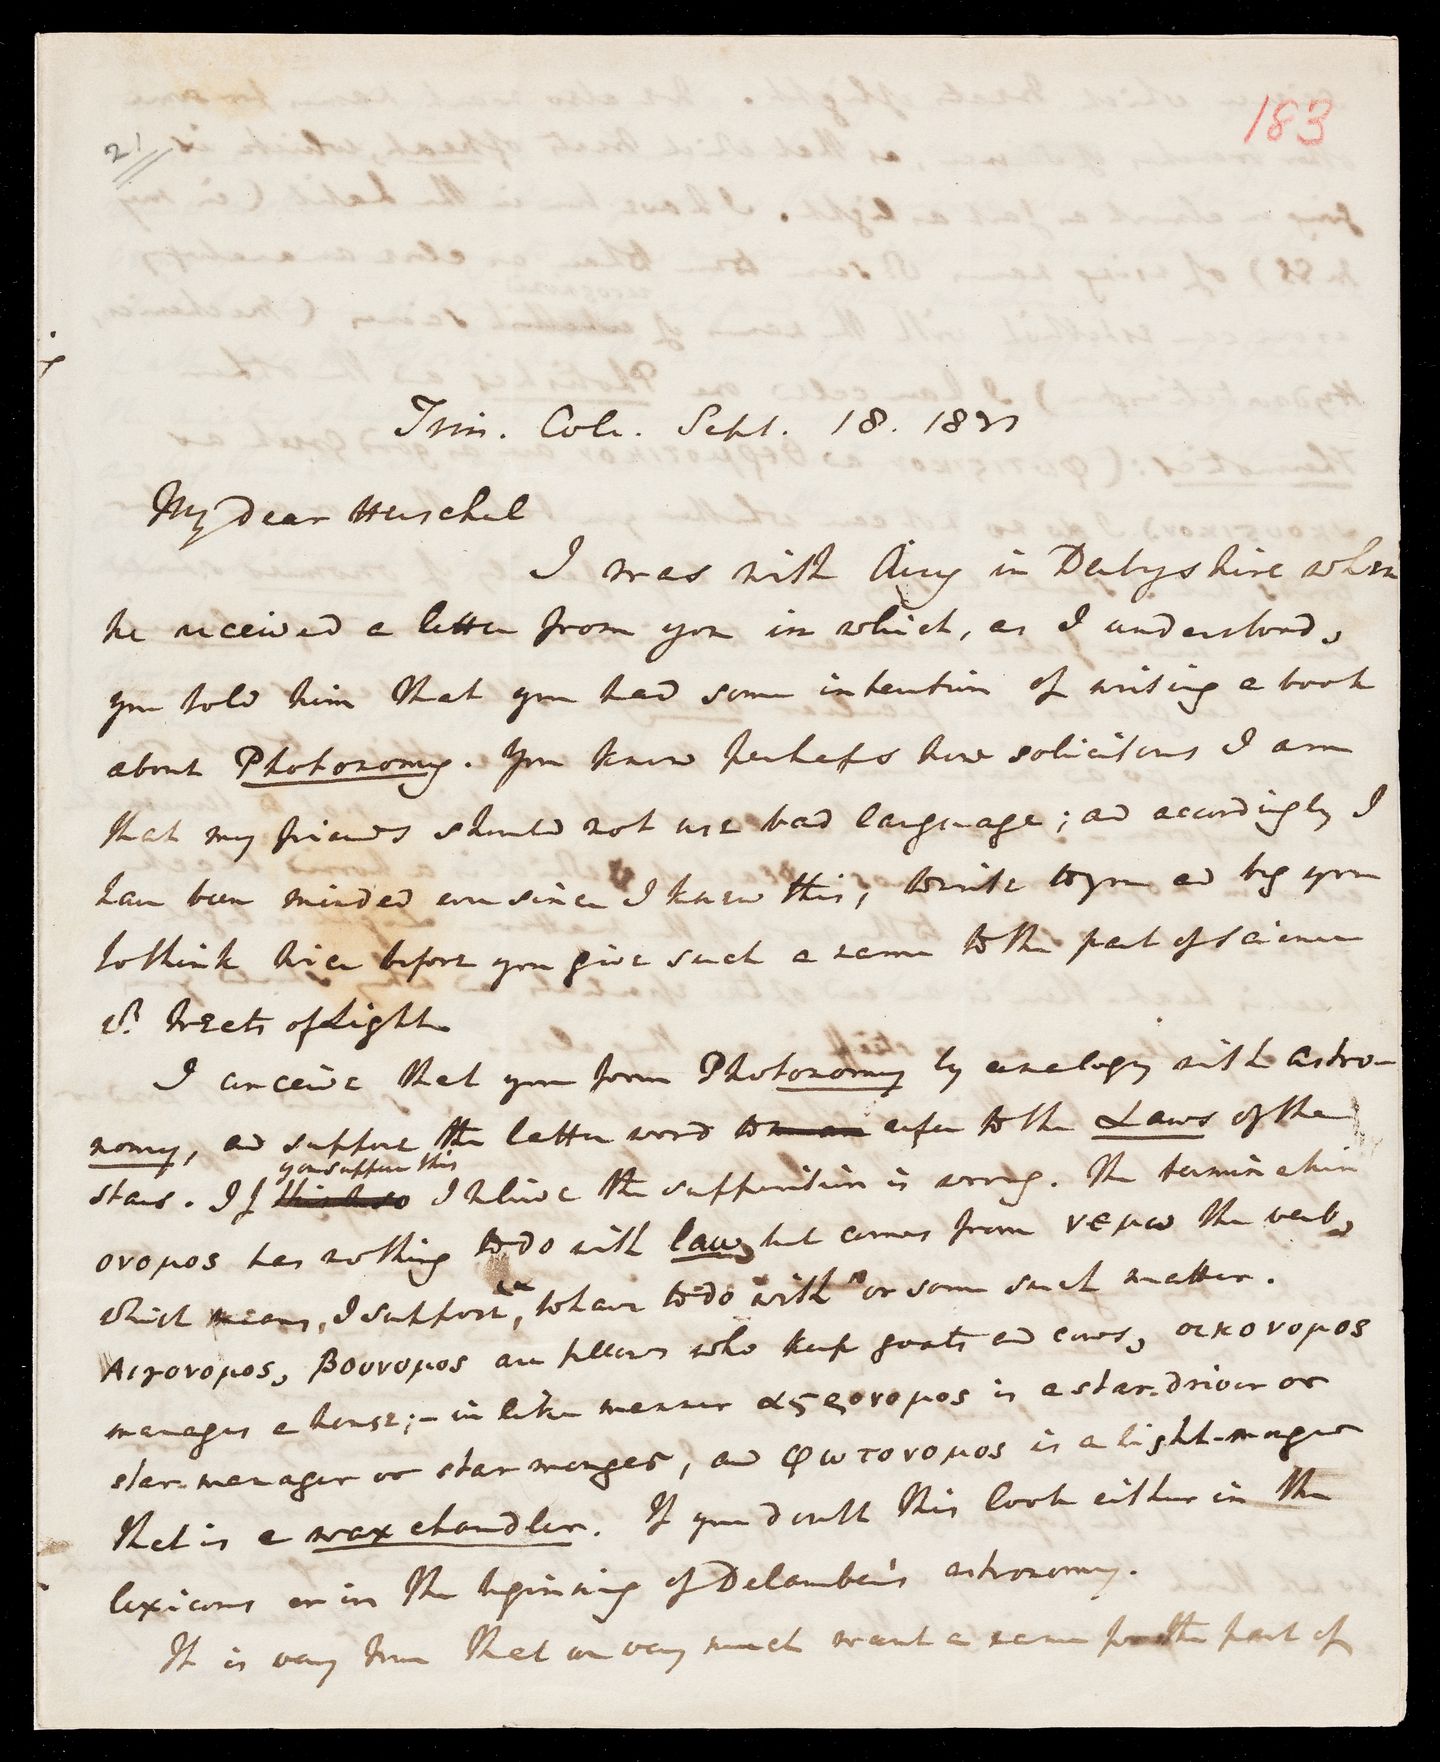 183
21
Trin. Coll. Sept. 18. 18
My dear Herschel
I was with Airy in Derbyshire when
he received a letter from you in which, as I understood,
you told him that you had some intention of writing a book
about Photonomy. You know perhaps how solicitous I am
that my friends should not use bad language; and accordingly I
have been minded ever since I knew this, to write to you and beg you
to think twice before you give such a name to the part of science
wh. treats of Light.
I conceive that you form Photonomy by analogy with astro-
nomy, and suppose the latter word to refer to the Laws of the
stars. If you suppose this this be so I believe the supposition is wrong. The termination
ονομος has nothing to do with law, but comes from νεμω the verb,
which means, I suppose, to have to do with or some such matter.
Αιγονομος, βουνομος are fellows who keep goats and cows, οικονομος
manages a house; – in like manner αςρονομος is a star-driver or
star-manager or star monger, and φωτονομος is a light-monger
that is a wax chandler. If you doubt this look either in the
lexicons or in the beginning of Delambre's astronomy.
It is very true that we very much want a name for the part of